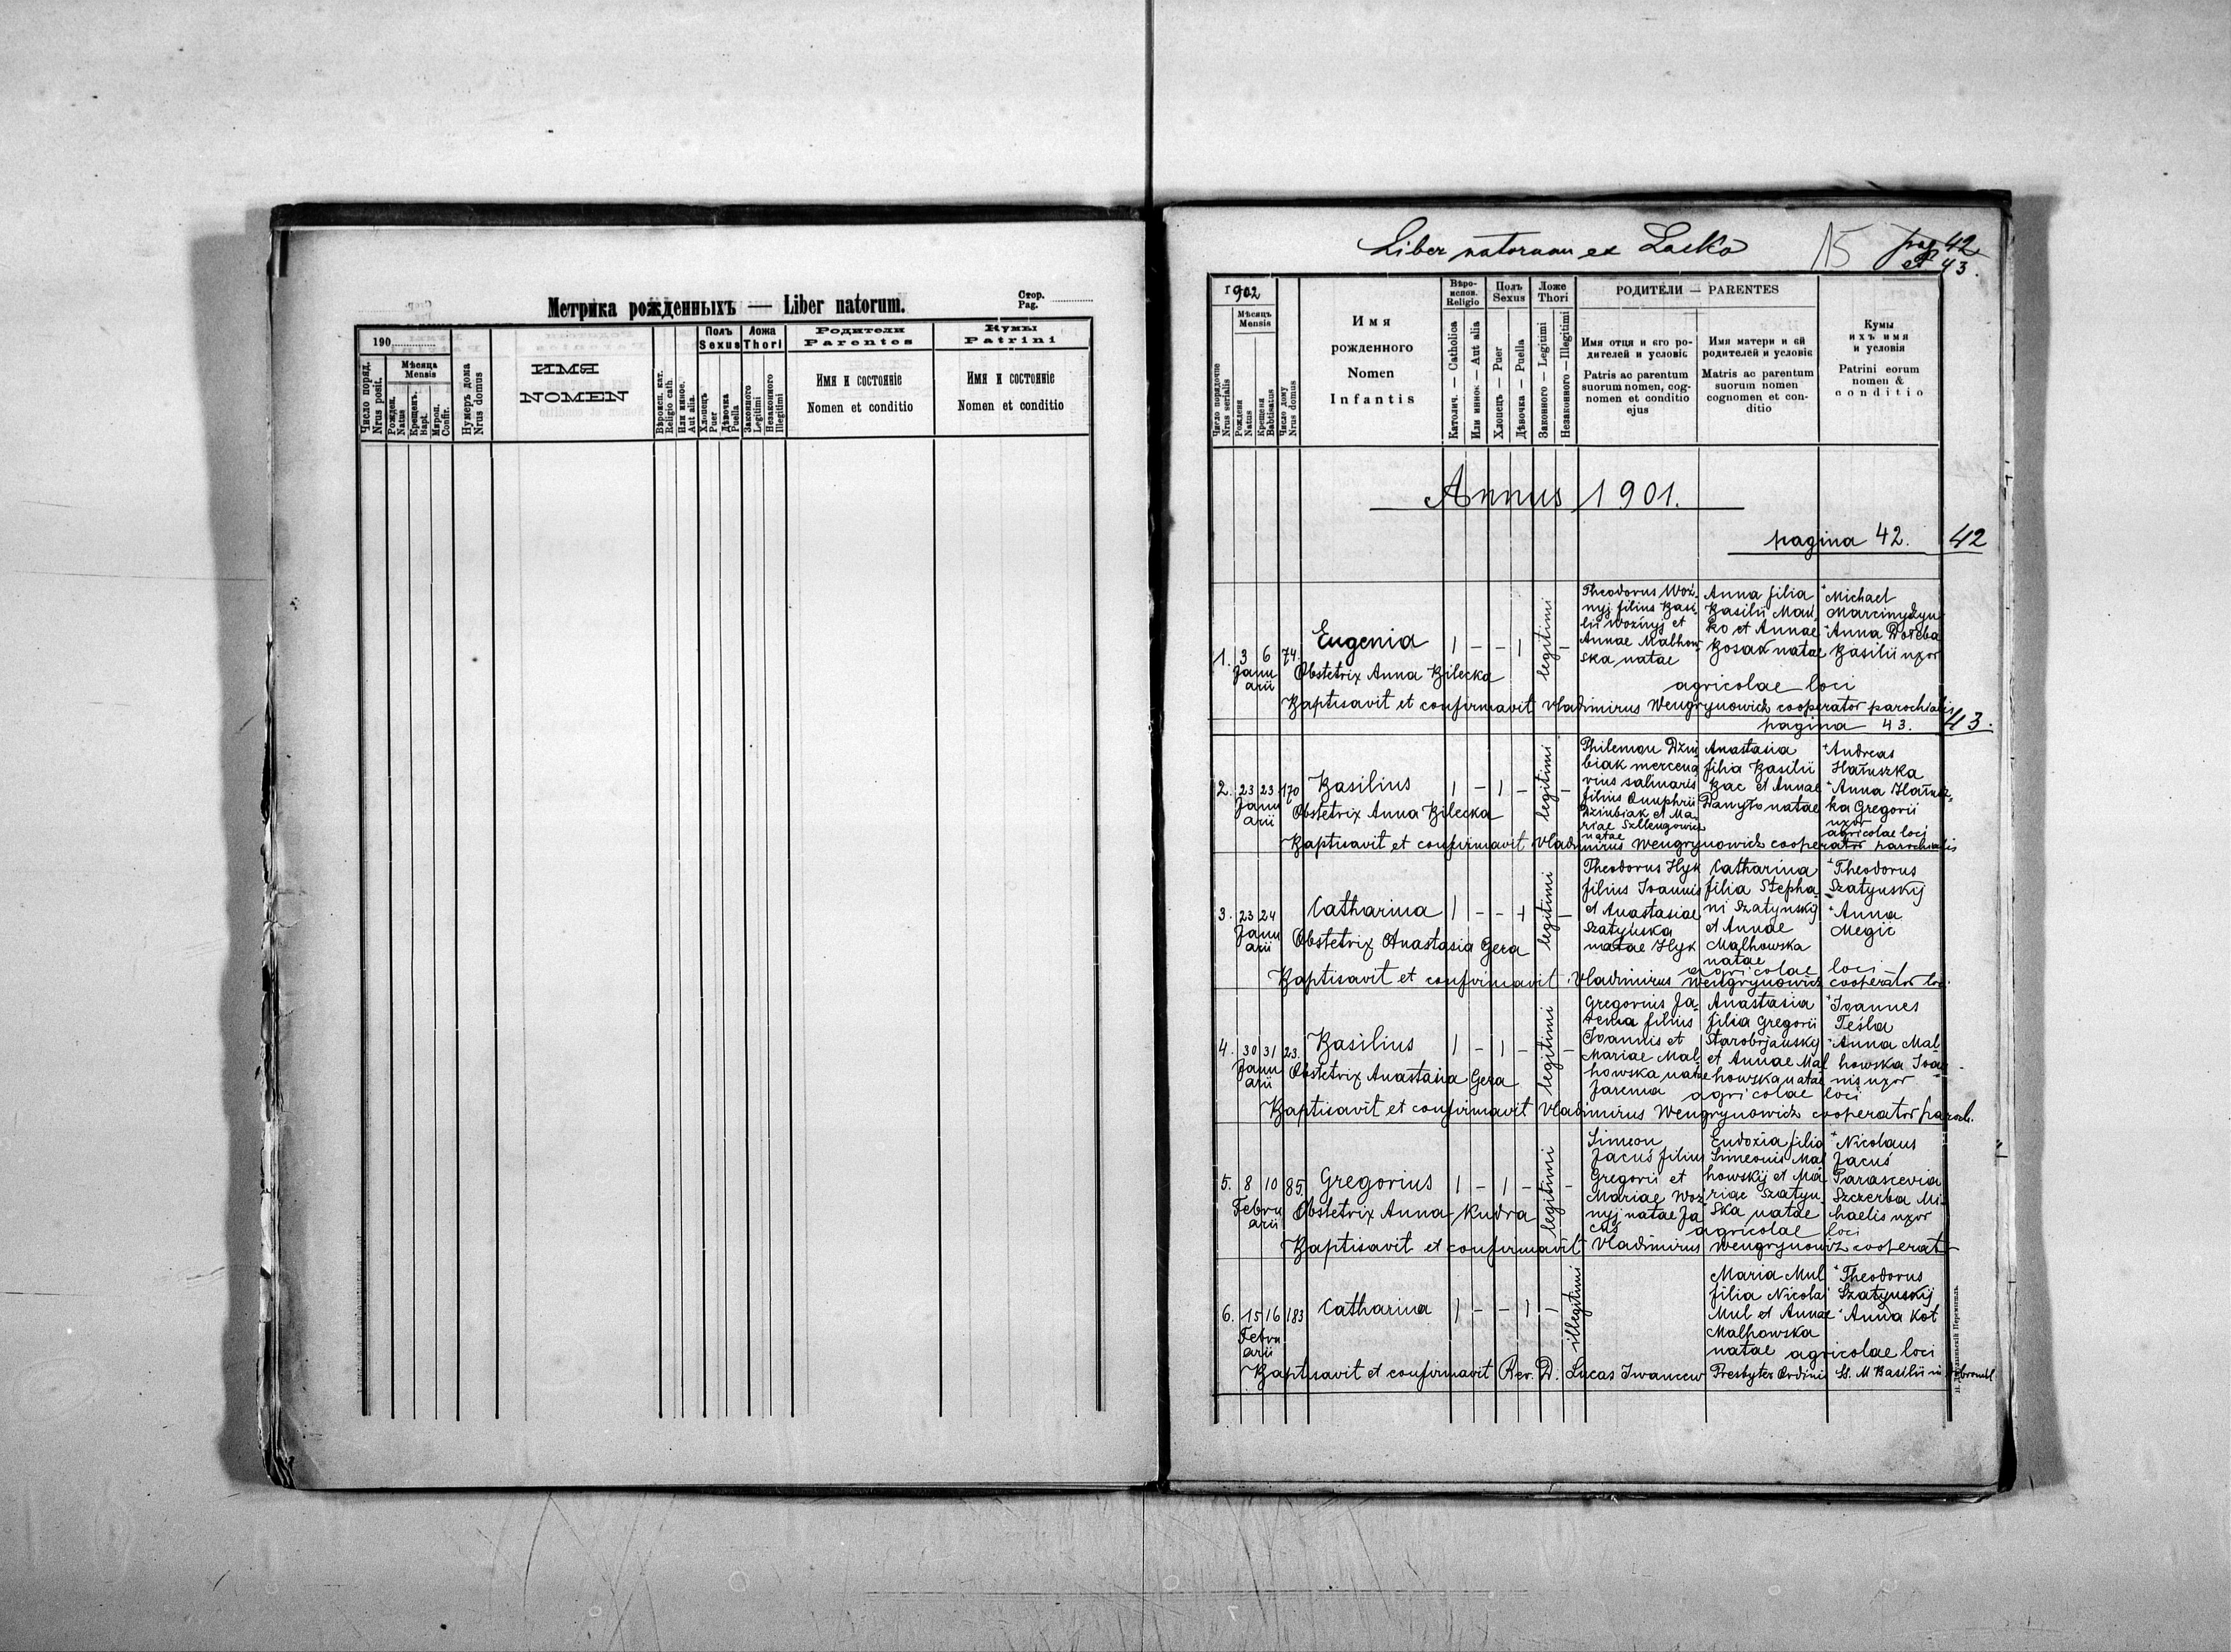 Метрика рожденныхъ — Liber natorum.
Стор.
Pag.
190
Мѣсяца
Mensis
Число поряд.
Nrus posit.
Рожден.
Natus
Крещенъ.
Bapt.
Мѵроп.
Confir.
Нумеръ дома
Nrus domus
ИМЯ
NOMEN
Вѣроисп. кат.
Religio cath.
Или иное.
Aut alia.
Полъ
Sexus
Хлопецъ
Puer
Дѣвочка
Puella
Ложа
Thori
Законного
Legitimi
Незаконного
Illegitimi
Родители
Parentes
Имя и состоянiе
Nomen et conditio
Кумы
Patrini
Имя и состоянiе
Nomen et conditio
Liber natorum ex Lacko
15
pag 42
et 43.
1902
Мѣсяцъ
Mensis
Число порядочне
Nrus serialis
Рожденя
Natus
Крещеня
Babtisatus
Число дому
Nrus domus
Имя
рожденного
Nomen
Infantis
Вѣро-
испов.
Religio
Католич. — Catholica
Или инок — Aut alia
Полъ
Sexus
Хлопецъ — Puer
Дѣвочка — Puella
Ложе
Thori
Законного — Legitimi
Незаконного — Illegitimi
РОДИТЕЛИ — PARENTES
Имя отца и его ро-
дителей и условіє
Patris ac parentum
suorum nomen, cog-
nomen et conditio
ejus
Имя матери и єй
родителей и условіє
Matris ac parentum
suorum nomen
cognomen et con-
ditio
Кумы
ихъ имя
и условія
Patrini eorum
nomen &
conditio
Annus 1901.
pagina 42.
42
1. 3 6 74.
Janu
arii
Eugenia 1 – – 1 legitimi –
Obstetrix Anna Bilecka
Theodorus Woź-
nyj filius Basi-
lii Woźnyj et
Annae Malhow-
ska natae
Anna filia
Basilii Mań
ko et Annae
Bosak natae
Michael
Marcinydzyn
Anna Dołęba
Basilii uxor
agricolae loci
Baptisavit et confirmavit Vladimirus Wengrynowicz cooperator parochialis
pagina 43.
43.
2. 23 23 170
Janu
arii
Basilius 1 – 1 – legitimi –
Obstetrix Anna Bilecka
Philemon Dziu
biak mercena
rius salinaris
filius Onuphrii
Dziubiak et Ma-
riae Szllengowicz
natae
Anastasia
filia Basilii
Bac et Annae
Danyło natae
Andreas
Hałuszka
Anna Hałusz-
ka Gregorii
uxor
agricolae loci
Baptisavit et confirmavit Vladimirus Wengrynowicz cooperator parochialis
3. 23 24
Janu
arii
Catharina 1 – – 1 legitimi –
Obstetrix Anastasia Gera
Theodorus Hyk
filius Joannis
et Anastasiae
Szatyńska
natae Hyk
Catharina
filia Stepha
ni Szatynskij
et Annae
Malhowska
natae
Theodorus
Szatynskij
Anna
Megic
agricolae loci
Baptisavit et confirmavit Vladimirus Wengrynowicz cooperator loci
4. 30 31 23.
Janu
arii
Basilius 1 – 1 – legitimi –
Obstetrix Anastasia Gera
Gregorius Ja-
rema filius
Joannis et
Mariae Mal-
howska natae
Jarema
Anastasia
filia Gregorii
Starobrjanskij
et Annae Mal
howska natae
Joannes
Teśla
Anna Mal
howska Joan-
nis uxor
agricolae loci
Baptisavit et confirmavit Vladimirus Wengrynowicz cooperator paroch.
5. 8 10 85.
Febru
arii
Gregorius 1 – 1 – legitimi –
Obstetrix Anna Kudra
Simeon
Jacuś filius
Gregorii et
Mariae Woź
nyj natae Ja
cuś
Eudoxia filia
Simeonis Mal
howskij et Ma
riae Szatyn
ska natae
Nicolaus
Jacuś
Parascevia
Szczerba Mi-
haelis uxor
agricolae loci
Baptisavit et confirmavit Vladimirus Wengrynowicz cooperat
6. 15 16 183
Febru
arii
Catharina 1 – – 1 – illegitimi
Maria Mul
filia Nicolai
Mul et Annae
Malhowska
natae
Theodorus
Szatynskij
Anna Kot
agricolae loci
Baptisavit et confirmavit Rev. D. Lucas Iwancew Presbyter Ordinis St. M Basilii in Dobromil